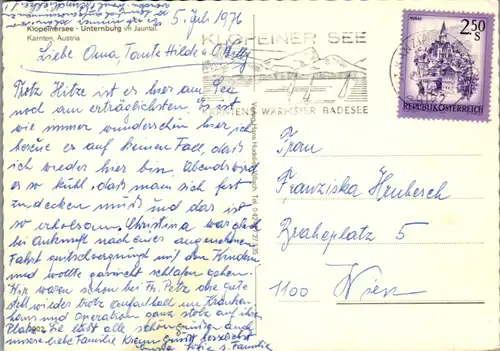 5. Juli 1976
Klopeinersee - Unternburg im Jauntal
Kärnten, Austria
Liebe Oma, Tante Hilde u. O. Willy
Trotz Hitze ist es hier am See
noch am erträglichsten. Es ist
wie immer wunderschön hier ich
bereue es auf keinen Fall, daß
ich wieder hier bin. Abends wird
es so kühl, daß man sich fest
zudecken muß und das ist
so erholsam. Christina war gleich
bei Ankunft nach einer angenehmen
Fahrt gutgelaunt mit den Kindern
und wollte garnicht schlafen gehen.
Wir waren schon bei Fr. Petz die gute
stell wieder trotz Aufenthalt im Kranken-
haus und Operation ganz stolz auf ihren
Platz. Sie läßt alle schön grüßen auch
unsere liebe Familie grüßt herzlichst
Familie
KLOPEINER SEE
KÄRNTENS WÄRMSTER BADESEE
2.50 S
REPUBLIK ÖSTERREICH
Frau
Franziska Hrubesch
Brahoplatz 5
1100 Wien